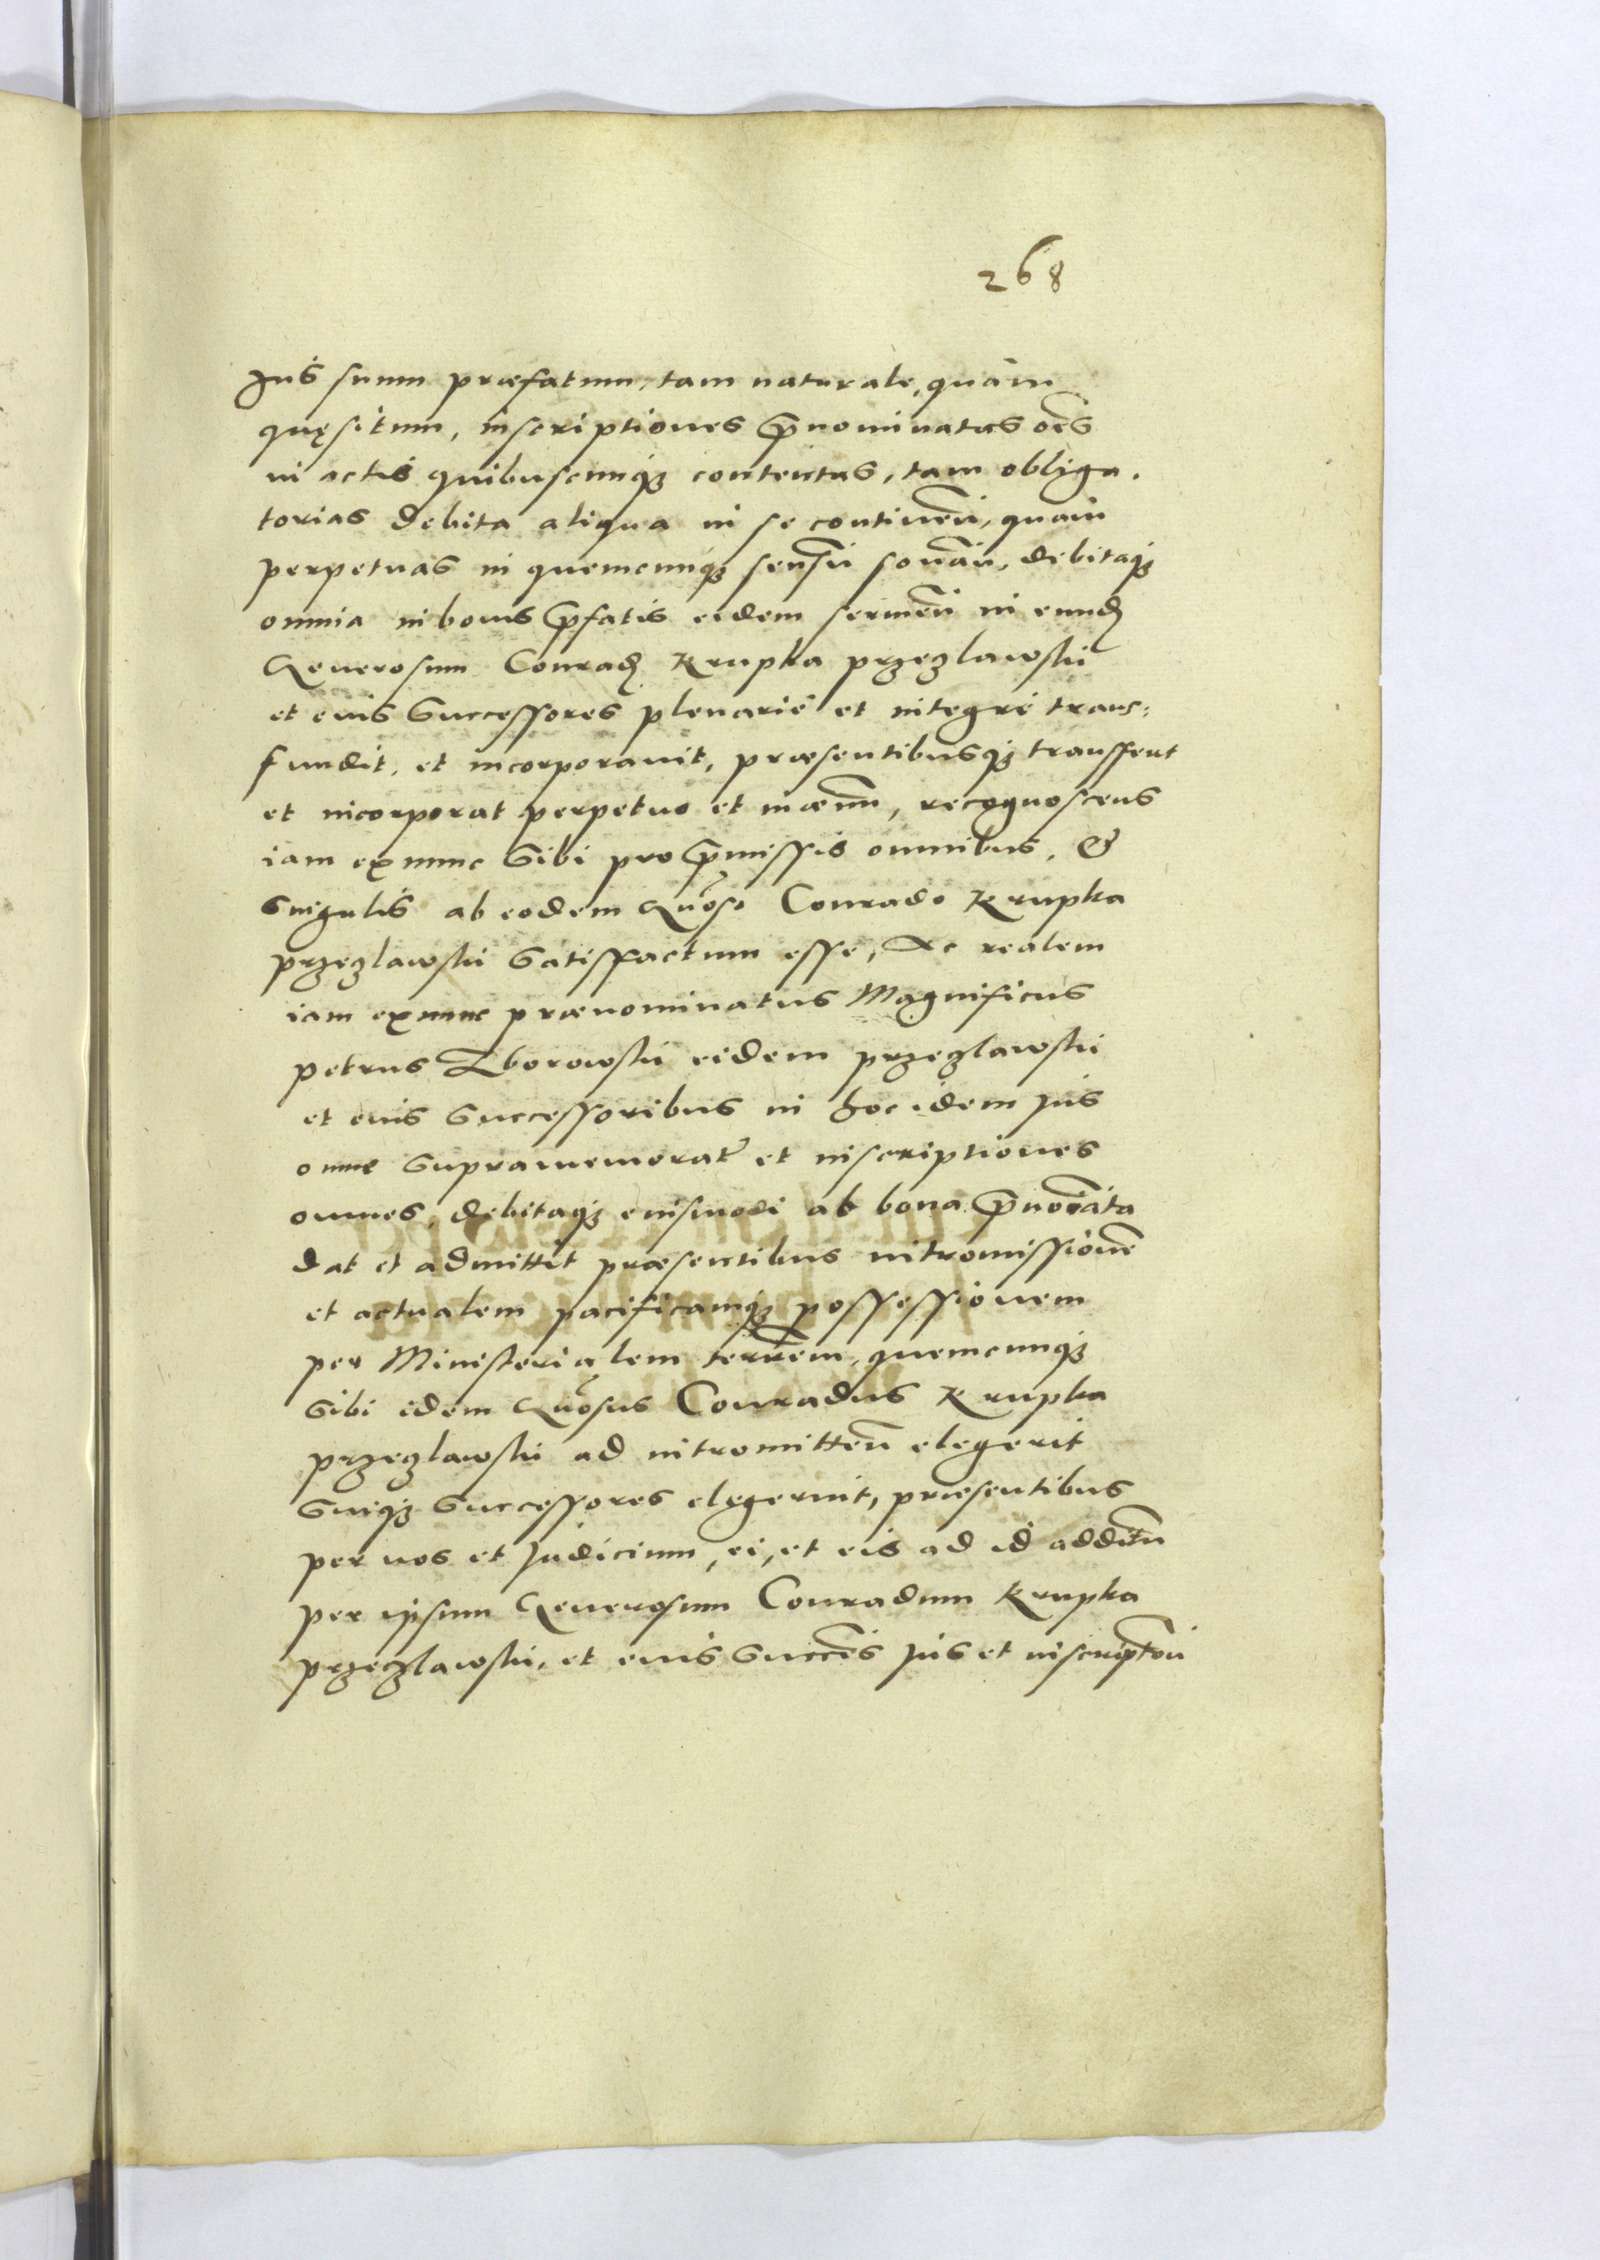 268
Jus suum præfatum, tam naturale, quàm
quęsitum, inscriptiones p̄nominatas oēs
in actis quibuscunqꝫ contentas, tam obliga.
torias debita aliqua in se continen̄, quam
perpetuas in quemcunqꝫ sensū sonan̄, debitaqꝫ
omnia in bonis p̄fatis eidem seruien̄ in eund
Generosum Conrad Krupka przezlawski
et eius Successores plenariè et integrè trans:
fundit, et incorporauit, præsentibusqꝫ transfert
et incorporat perpetuo et in æuum, recognoscens
iam ex nunc Sibi pro p̄missis omnibus, &
Singulis ab eodem Gn̄oso Conrado Krupka
przezlawski Satisfactum esse, Ac realem
iam ex nunc prænominatus Magnificus
petrus Zborowski eidem przezlawski
et eius Successoribus in hoc idem jus
omne Supramemorat et inscriptiones
omnes, debitaqꝫ eiusmodi ab bona p̄noīata
dat et admittit præsentibus intromissionē
et actualem pacificamqꝫ possessionem
per Ministerialem terrēm, quemcunqꝫ
Sibi idem Gn̄osus Conradus Krupka
przezlawski ad intromitten̄ elegerit
Suiqꝫ Successores elegerint, præsentibus
per nos et Judicium, ei, et eis ad id additū
per ipsum Generosum Conradum Krupka
przezlawski, et eius Succēs jus et inscriptōn